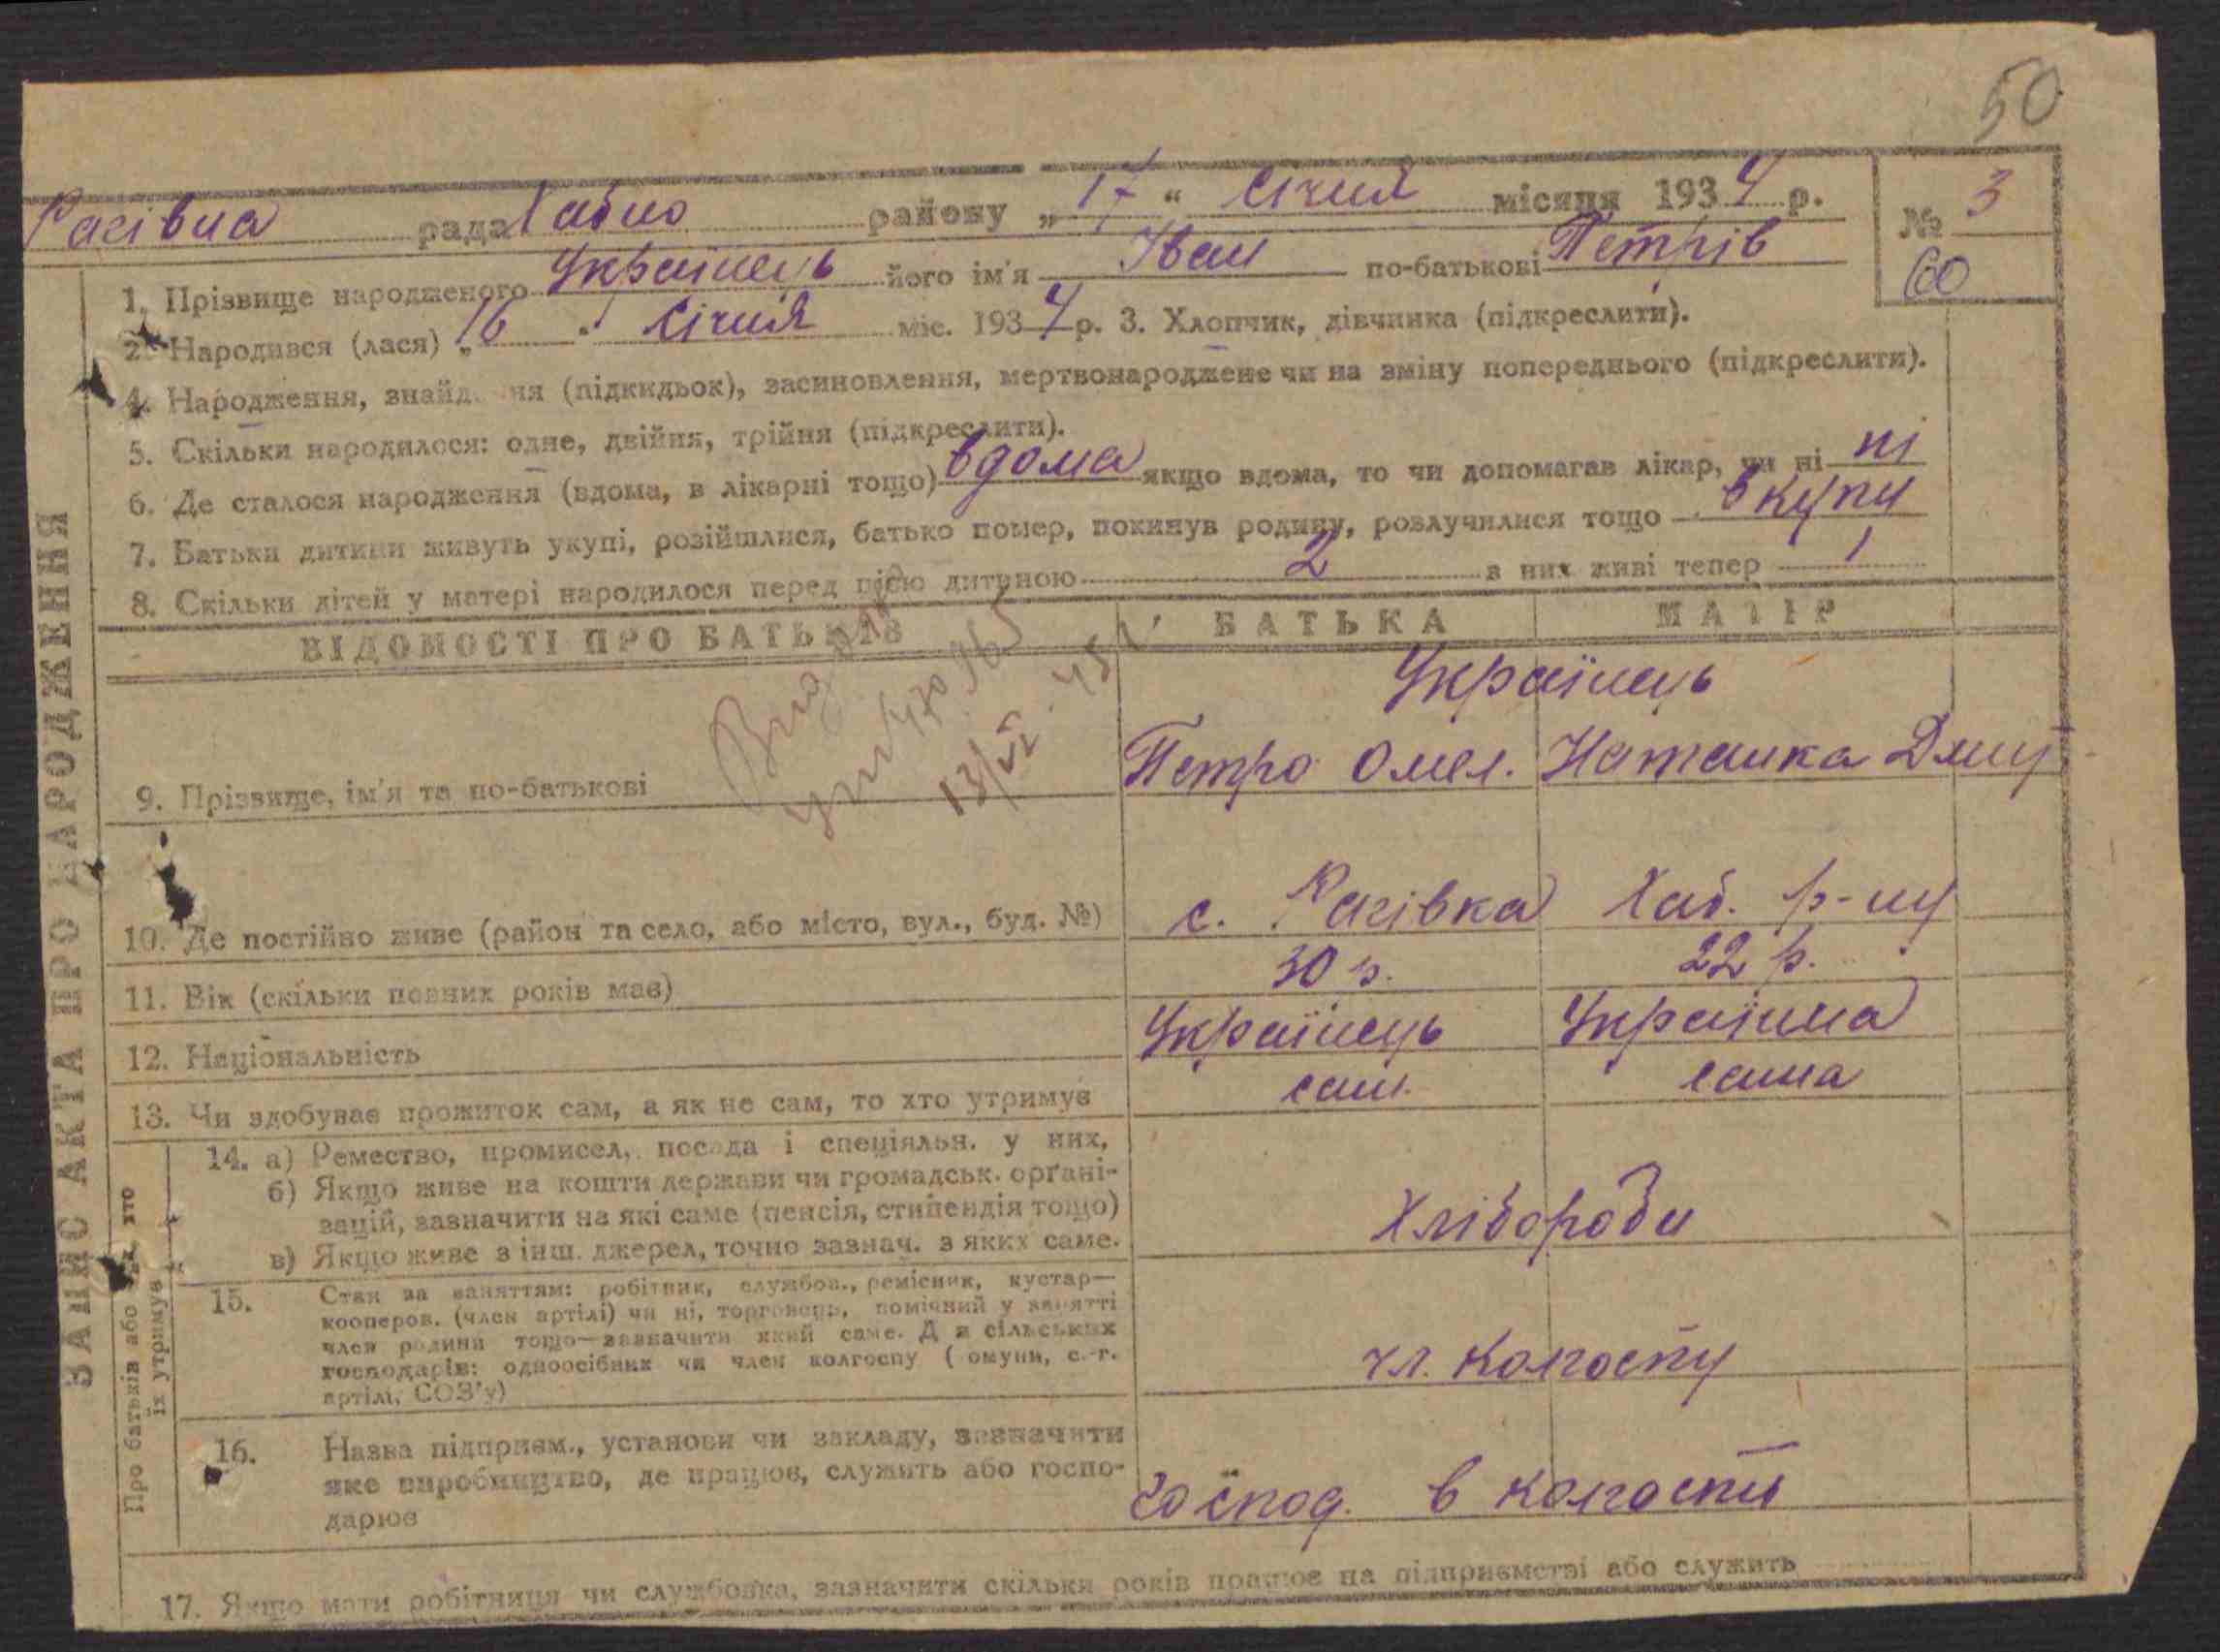 50
Рагівна рада Хабно району „17“ Січня місяця 1934 р. № 3
60
1. Прізвище народженого Українець його ім'я Іван по-батькові Петрів
2. Народився (лася) „16“ Січня міс. 1934 р. 3. Хлопчик, дівчинка (підкреслити).
4. Народження, знайд ня (підкидьок), засиновлення, мертвонароджене чи на зміну попереднього (підкреслити).
5. Скільки народилося: одне, двійня, трійня (підкреслити).
6. Де сталося народження (вдома, в лікарні тощо) вдома якщо вдома, то чи допомагав лікар, чи ні ні
7. Батьки дитини живуть укупі, розійшлися, батько помер, покинув родину, розлучилися тощо вкупи
8. Скільки дітей у матері народилося перед цією дитиною 2 з них живі тепер 1
ВІДОМОСТІ ПРО БАТЬКІВ БАТЬКА МАТІР
Українець
9. Прізвище, ім'я та по-батькові Петро Омел. Наталка Дмит
13/VI-45
10. Де постійно живе (район та село, або місто, вул., буд. №) с. Рагівка Хаб. р-ну
11. Вік (скільки повних років має) 30 р. 22 р.
12. Національність Українець Українка
13. Чи здобуває прожиток сам, а як не сам, то хто утримує сам. сама
14. а) Ремество, промисел, посада і спеціяльн. у них,
б) Якщо живе на кошти держави чи громадськ. орґані-
зацій, зазначити на які саме (пенсія, стипендія тощо)
в) Якщо живе з інш. джерел, точно зазнач. з яких саме.
Хлібороби
15. Стан за заняттям: робітник, службов., ремісник, кустар—
кооперов. (член артілі) чи ні, торговець, помічний у занятті
член родини тощо—зазначити який саме. Д я сільських
господарів: одноосібник чи член колгоспу ( омуни, с.-г.
артілі, СОЗ'у)
чл. колгоспу
16. Назва підприєм., установи чи закладу, зазначити
яке виробництво, де працює, служить або госпо-
дарює
Господ. в колгоспі
17. Якщо мати робітниця чи службовка, зазначити скільки років працює на підприємстві або служить
ЗАПИС АКТА ПРО НАРОДЖЕННЯ
Про батьків або хто
їх утримує